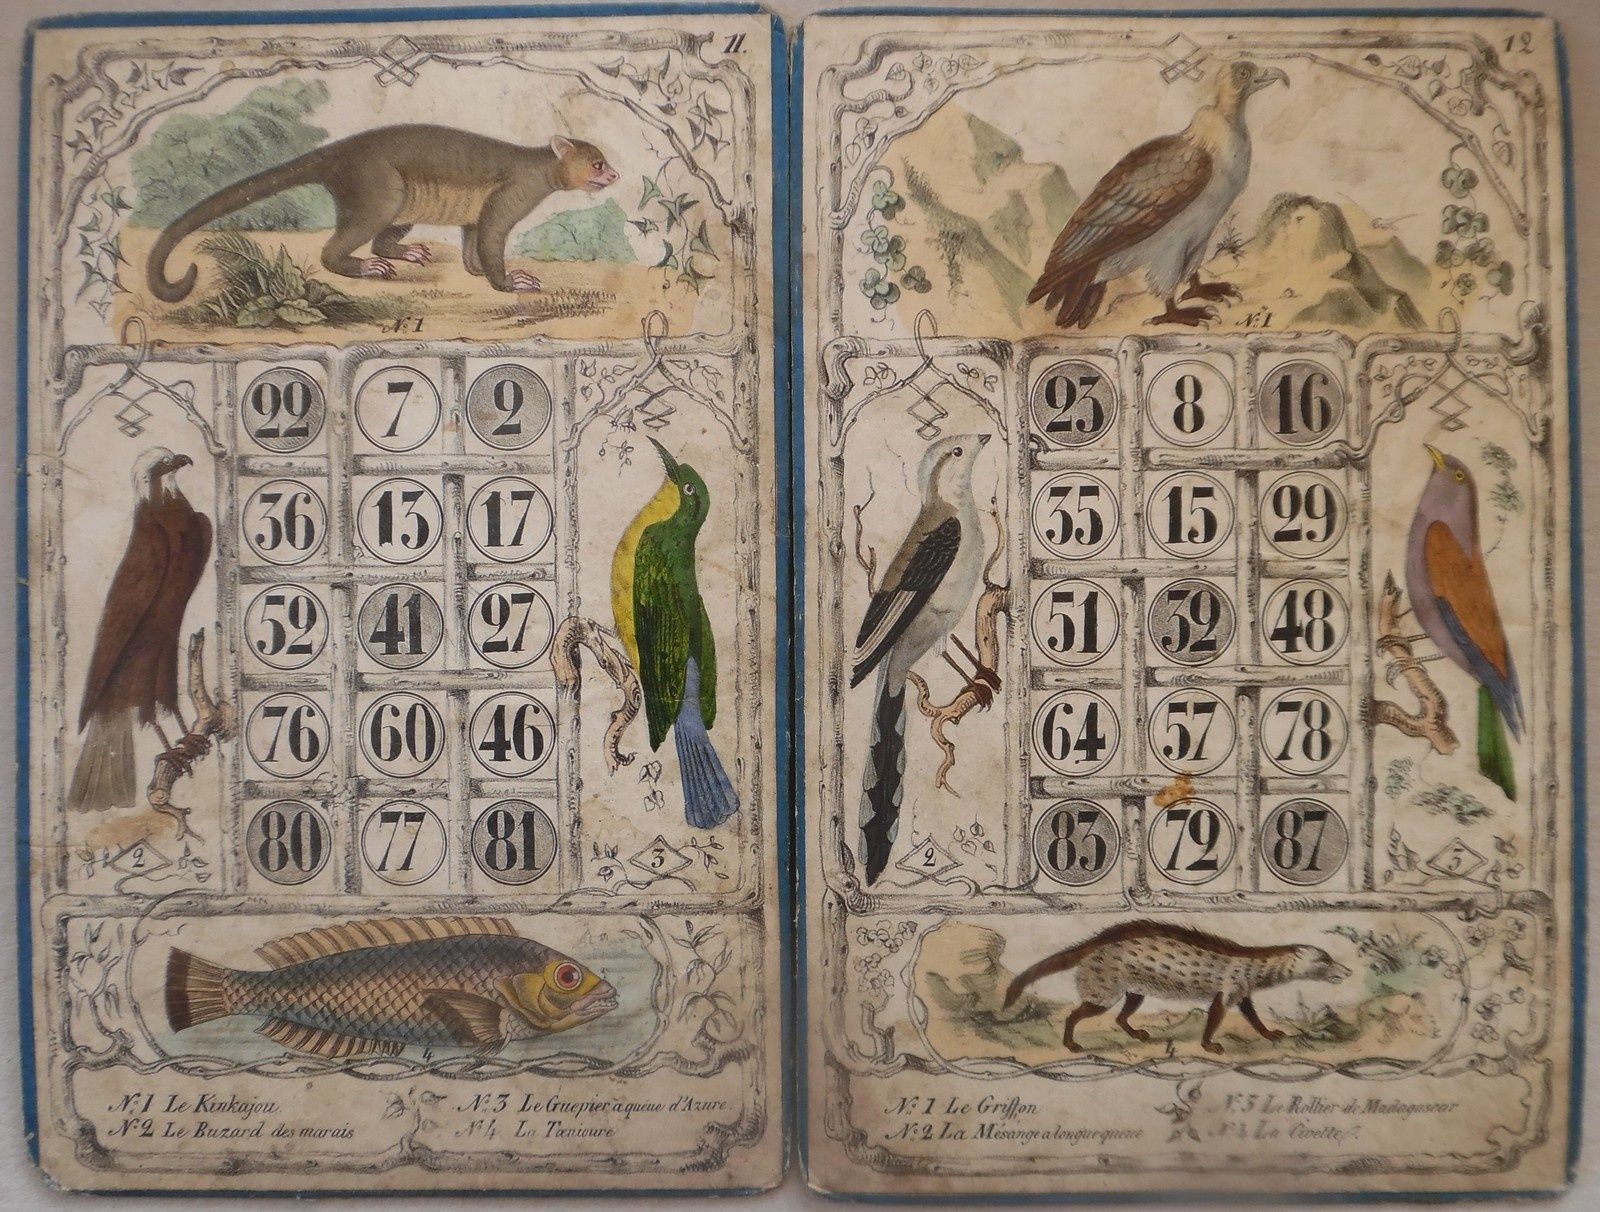 11.
Nº.1
22 7 2
36 13 17
52 41 27
76 60 46
80 77 81
2
3
4
Nº.1 Le Kinkajou.
Nº.2 Le Buzard des marais
Nº.3 Le Guepier à queue d'Azure.
Nº.4 La Tœnioure
12
Nº.1
23 8 16
35 15 29
51 32 48
64 57 78
83 72 87
2
3
4
Nº.1 Le Griffon
Nº.2 La Mésange a longue queue
Nº.3 Le Rollier de Madagascar
Nº.4 La Civette